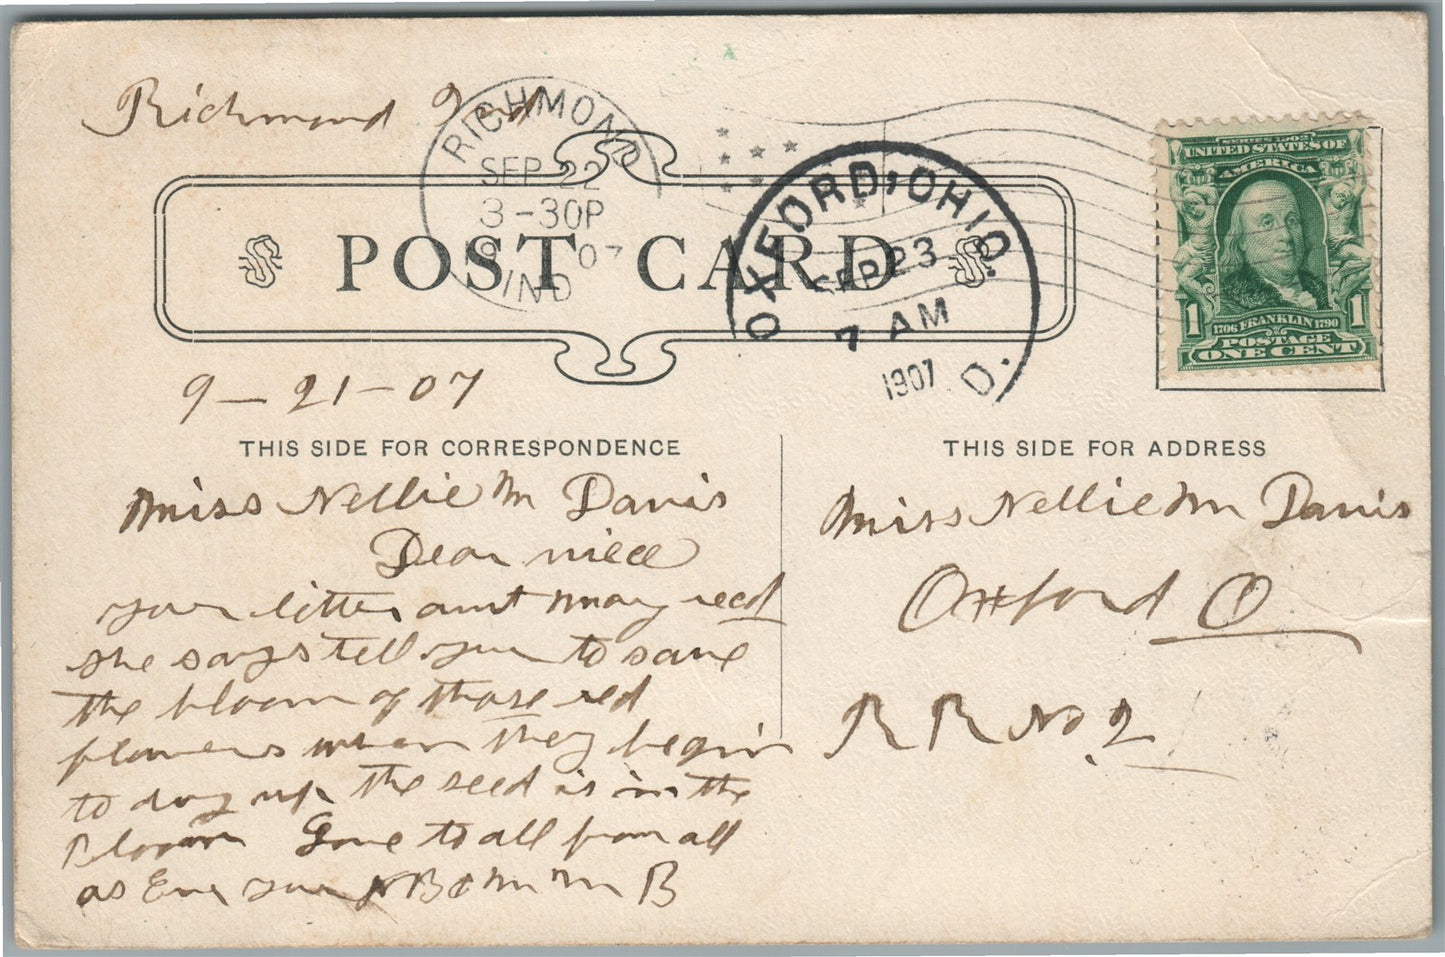 Richmond Ind
RICHMOND
SEP 22
3-30P
07
IND
OXFORD, OHIO.
SEP 23
7 AM
1907
D.
SERIES 1902
UNITED STATES OF
AMERICA
1706 FRANKLIN 1790
1 1
POSTAGE
ONE CENT
POST CARD
9-21-07
THIS SIDE FOR CORRESPONDENCE
Miss Nellie M Davis
Dear niece
your letter aunt mary recd
she says tell you to save
the bloom of those red
flowers when they begin
to dry up the seed is in the
bloom Love to all from all
as Ever your B &
THIS SIDE FOR ADDRESS
Miss Nellie M Davis
Oxford O
R R No 2